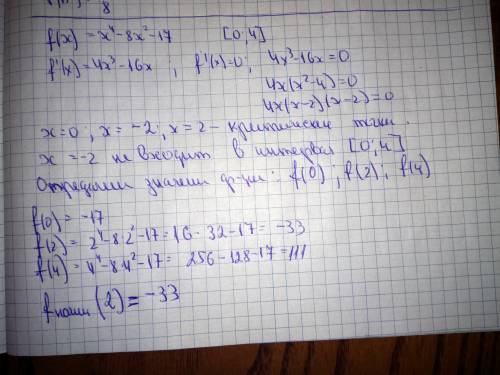 8
f(x) = x⁴-8x²-17 [0,4]
f'(x)=4x³-16x ; f'(x)=0; 4x³-16x=0
4x(x²-4)=0
4x(x-2)(x-2)=0
x=0; x=-2; x=2 - критически точки.
x=-2 не входит в интервал [0;4]
Определим значени ф-ции: f(0); f(2); f(4)
f(0)= -17
f(2)= 2⁴-8·2²-17=16-32-17= -33
f(4)=4⁴-8·4²-17= 256-128-17=111
f наим (2)= -33